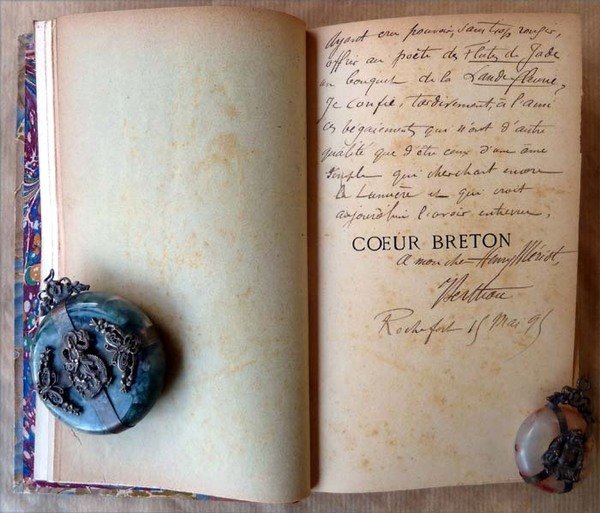 Ayant cru pouvoir, sans trop rougir,
offrir au poète des Flûtes de Jade
un bouquet de la Lande fleurie,
Je confie, tardivement, à l'ami
ces bégaiements qui n'ont d'autre
qualité que d'être ceux d'une âme
simple qui cherchait encore
la Lumière et qui croit
aujourd'hui l'avoir entrevue.
CŒUR BRETON
A mon cher Henry Mériot,
Berthou
Rochefort 15 Mai 95